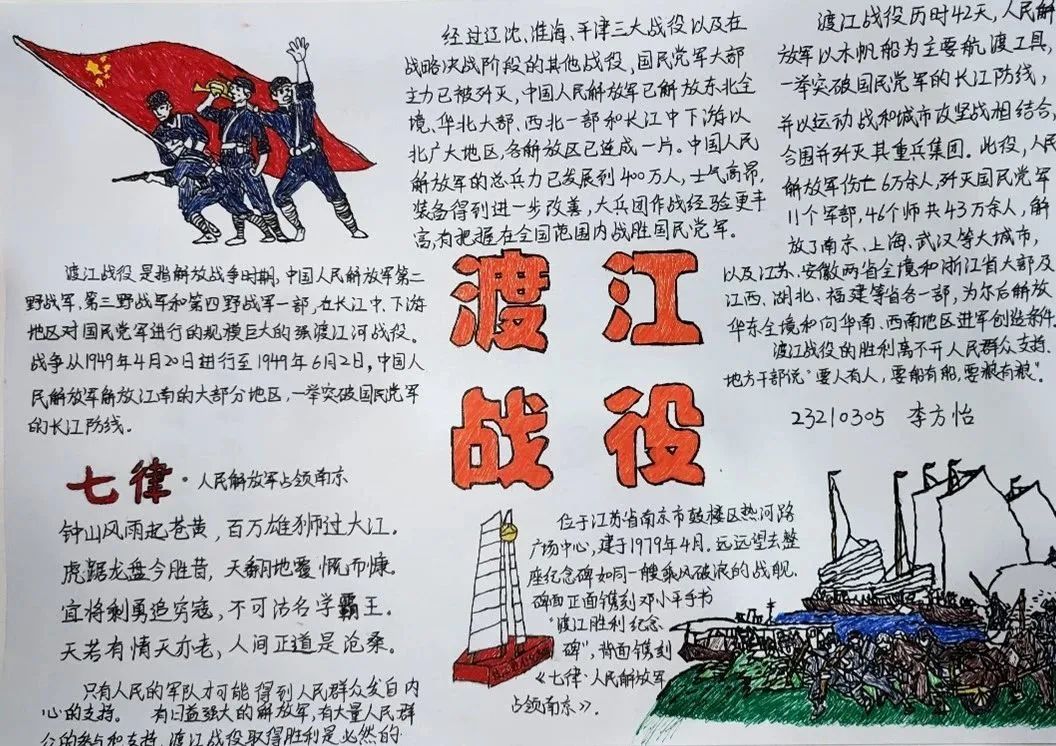 经过辽沈、淮海、平津三大战役以及在
战略决战阶段的其他战役,国民党军大部
主力已被歼灭,中国人民解放军已解放东北全
境、华北大部、西北一部和长江中下游以
北广大地区,各解放区已连成一片。中国人民
解放军的总兵力已发展到400万人,士气高昂,
装备得到进一步改善,大兵团作战经验更丰
高,有把握在全国范围内战胜国民党军。
渡江战役历时42天,人民解
放军以木帆船为主要航渡工具,
一举突破国民党军的长江防线,
并以运动战和城市攻坚战相结合,
合围并歼灭其重兵集团。此役,人民
解放军伤亡6万余人,歼灭国民党军
11个军部,46个师共43万余人,解
放了南京、上海、武汉等大城市,
以及江苏、安徽两省全境和浙江省大部及
江西、湖北、福建等省各一部,为尔后解放
华东全境和向华南、西南地区进军创造条件.
渡江战役的胜利离不开人民群众支持.
地方干部说“要人有人,要船有船,要粮有粮”.
23210305 李方怡
渡江战役是指解放战争时期,中国人民解放军第二
野战军、第三野战军和第四野战军一部,在长江中、下游
地区对国民党军进行的规模巨大的强渡江河战役。
战争从1949年4月20日进行至1949年6月2日,中国人
民解放军解放江南的大部分地区,一举突破国民党军
的长江防线。
渡江
战役
七律·人民解放军占领南京
钟山风雨起苍黄,百万雄狮过大江.
虎踞龙盘今胜昔,天翻地覆慨而慷.
宜将剩勇追穷寇,不可沽名学霸王.
天若有情天亦老,人间正道是沧桑.
只有人民的军队才可能得到人民群众发自内
心的支持。有日益强大的解放军,有大量人民群
众的参与和支持,渡江战役取得胜利是必然的.
位于江苏省南京市鼓楼区热河路
广场中心,建于1979年4月.远远望去整
座纪念碑如同一艘乘风破浪的战舰.
碑面正面镌刻邓小平手书
“渡江胜利纪念
碑”,背面镌刻
《七律·人民解放军
占领南京》.